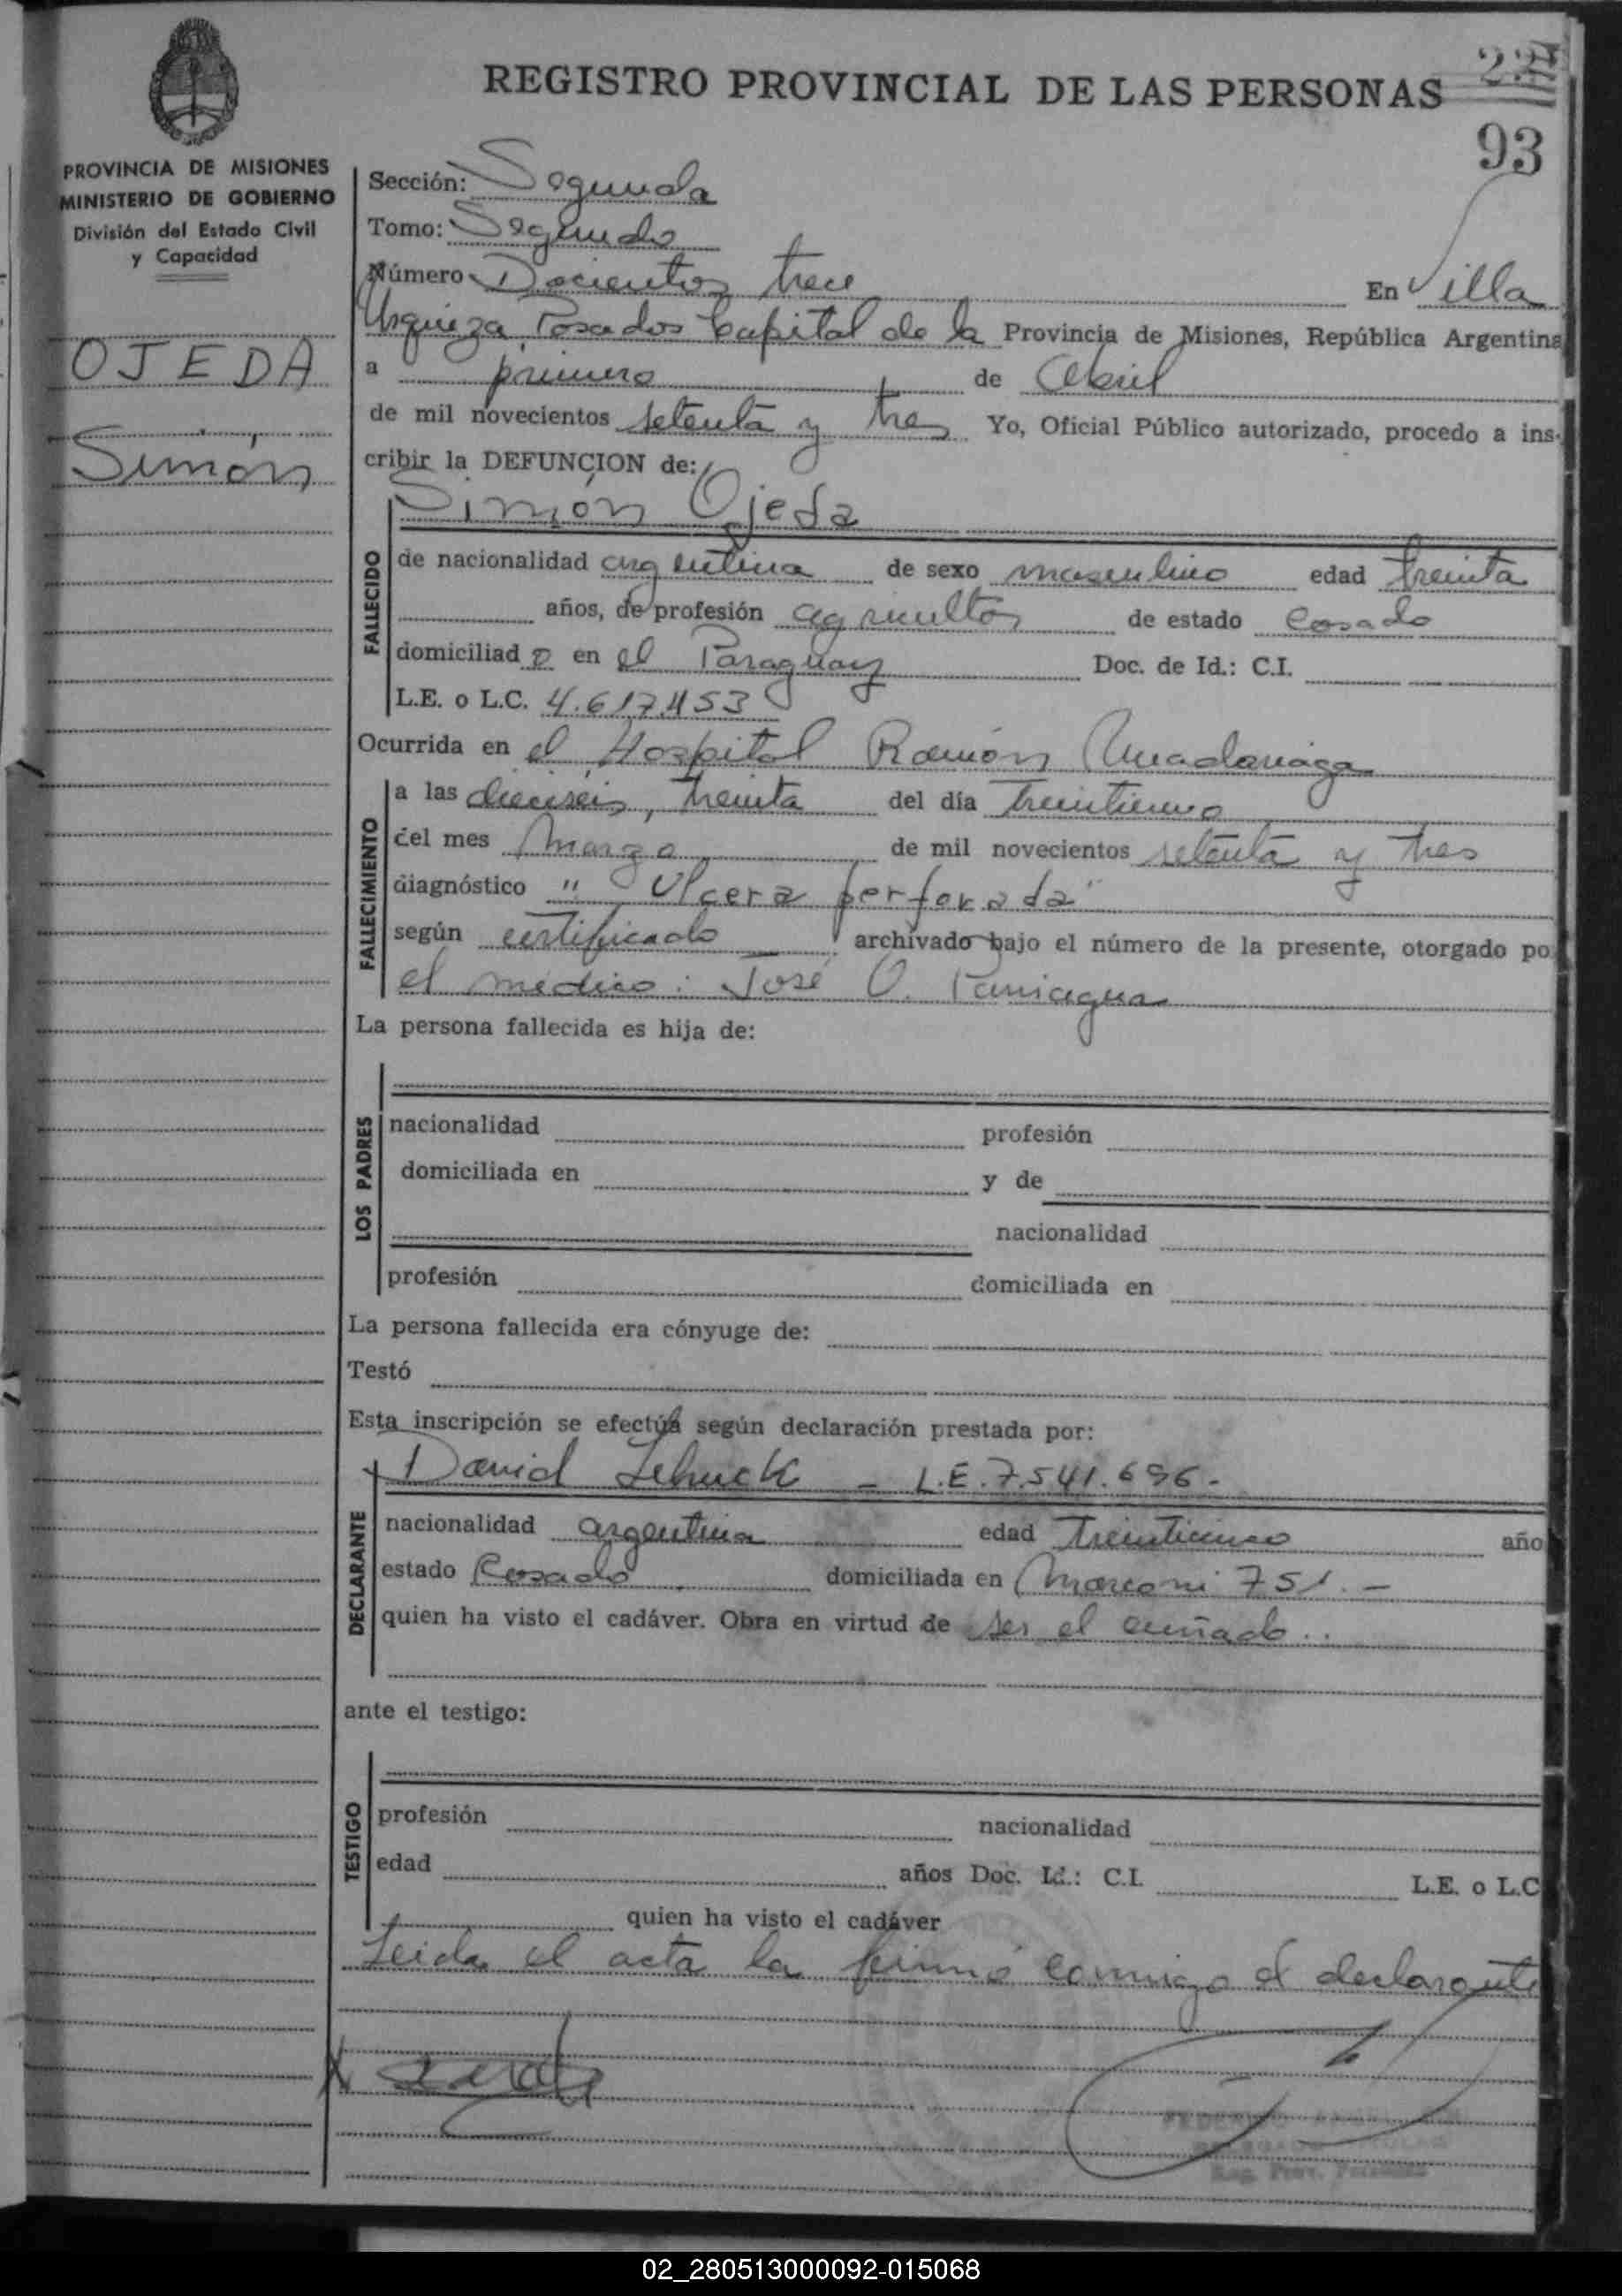 REGISTRO PROVINCIAL DE LAS PERSONAS
93
PROVINCIA DE MISIONES
MINISTERIO DE GOBIERNO
División del Estado Civil
y Capacidad
OJEDA
Simón
Sección: Segunda
Tomo: Segundo
Número Docientos trece En Villa
Urquiza Posadas Capital de la Provincia de Misiones, República Argentina
a primero de Abril
de mil novecientos setenta y tres Yo, Oficial Público autorizado, procedo a ins-
cribir la DEFUNCION de:
Simón Ojeda
FALLECIDO
de nacionalidad argentina de sexo masculino edad treinta
años, de profesión agricultor de estado Casado
domiciliad o en el Paraguay Doc. de Id.: C.I.
L.E. o L.C. 4.617.453
Ocurrida en el Hospital Ramón Madariaga
FALLECIMIENTO
a las dieciseis, treinta del día treintiuno
del mes Marzo de mil novecientos setenta y tres
diagnóstico " Ulcera perforada"
según certificado archivado bajo el número de la presente, otorgado po
el médico: José O. Paniagua
La persona fallecida es hija de:
LOS PADRES
nacionalidad profesión
domiciliada en y de
nacionalidad
profesión domiciliada en
La persona fallecida era cónyuge de:
Testó
Esta inscripción se efectúa según declaración prestada por:
David Schuck - L.E. 7.541.696.-
DECLARANTE
nacionalidad argentina edad treinticinco año
estado Casado domiciliada en Marconi 751.-
quien ha visto el cadáver. Obra en virtud de ser el cuñado..
ante el testigo:
TESTIGO
profesión nacionalidad
edad años Doc. Id.: C.I. L.E. o L.C
quien ha visto el cadáver
Leida el acta la firmó conmigo el declarante
Reg. Prov. Personas
02_280513000092-015068